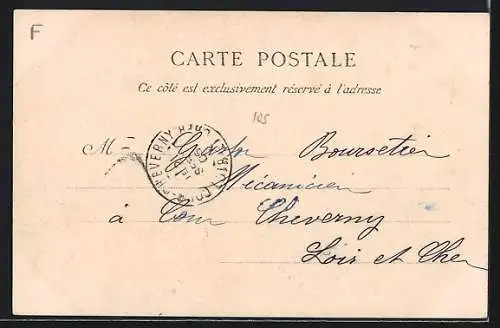 F
CARTE POSTALE
Ce côté est exclusivement réservé à l'adresse
105
M Gaston Boursetier
Mécanicien
à Cour Cheverny
Loir et Cher